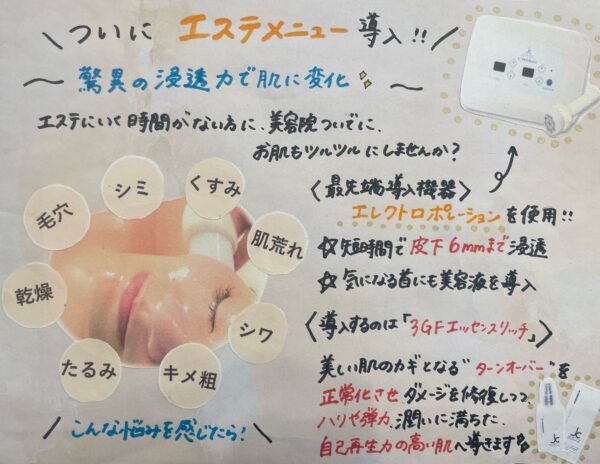 ついに エステメニュー 導入!!
〜 驚異の浸透力で肌に変化 〜
エステにいく時間がない方に、美容院ついでに、
お肌もツルツルにしませんか?
くすみ
シミ
毛穴
肌荒れ
乾燥
シワ
たるみ
キメ粗
こんな悩みを感じたら!
〈最先端導入機器〉
エレクトロポレーションを使用!!
☆短時間で皮下6mmまで浸透
☆気になる首にも美容液を導入
〈導入するのは「3GFエッセンスリッチ」〉
美しい肌のカギとなる"ターンオーバー"を
正常化させ ダメージを修復しつつ、
ハリや弾力、潤いに満ちた、
自己再生力の高い肌へ導きます